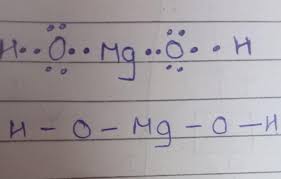 H··Ö··Mg··Ö··H
H-O-Mg-O-H